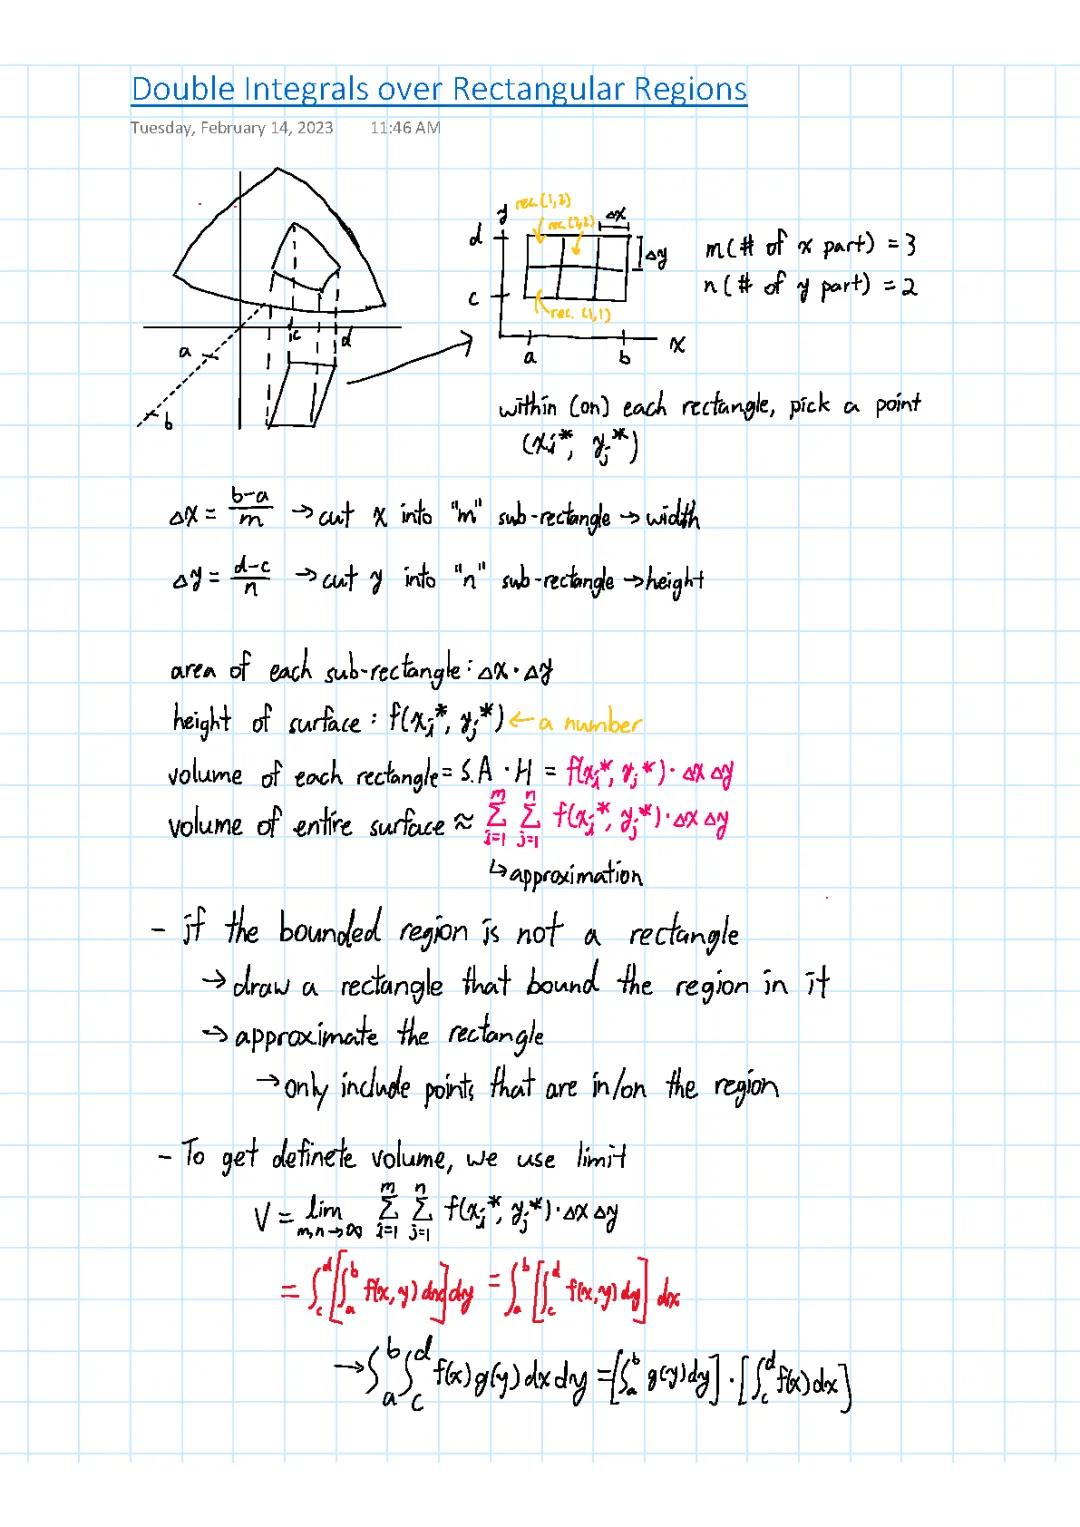 Double Integrals over Rectangular Regions
Tuesday, February 14, 2023 11:46 AM
y rec. (1,2)
d rec. (2,2) Δx
Δy
c
rec. (1,1)
a b x
m(# of x part) = 3
n(# of y part) = 2
a c d
b
within (on) each rectangle, pick a point
(xi*, yj*)
Δx = (b-a)/m → cut x into "m" sub-rectangle → width
Δy = (d-c)/n → cut y into "n" sub-rectangle → height
area of each sub-rectangle: Δx · Δy
height of surface : f(xi*, yj*) ← a number
volume of each rectangle = S.A · H = f(xi*, yj*) · Δx Δy
volume of entire surface ≈ Σ_{i=1}^{m} Σ_{j=1}^{n} f(xi*, yj*) · Δx Δy
↳ approximation
- if the bounded region is not a rectangle
→ draw a rectangle that bound the region in it
→ approximate the rectangle
→ only include points that are in/on the region
- To get definete volume, we use limit
V = lim_{m,n→∞} Σ_{i=1}^{m} Σ_{j=1}^{n} f(xi*, yj*) · Δx Δy
= ∫_c^d [∫_a^b f(x,y) dx] dy = ∫_a^b [∫_c^d f(x,y) dy] dx
→ ∫_a^b ∫_c^d f(x) g(y) dx dy = [∫_a^b g(y) dy] · [∫_c^d f(x) dx]